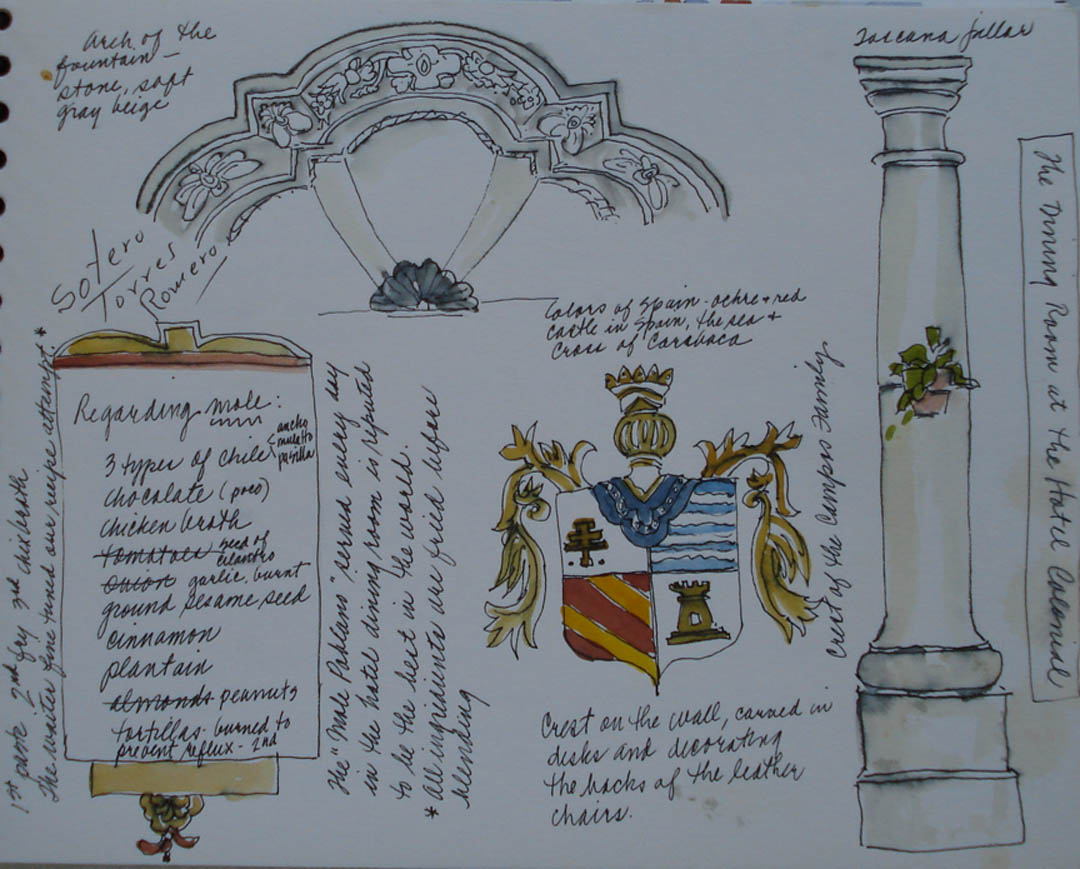 Arch of the
fountain -
stone, soft
gray beige
Toscana pillar
The Dining Room at the Hotel Colonial
Sotero
Torres
Romero
Colors of Spain - ochre & red
castle in Spain, the sea &
Cross of Caravaca
Regarding mole:
3 types of chile
ancho
mulatto
pasilla
chocolate (poco)
chicken broth
tomatoes seed of
cilantro
onion garlic, burnt
ground sesame seed
cinnamon
plantain
almonds peanuts
tortillas - burned to
prevent reflux - 2nd
1st paste 2nd fry 3rd chix broth
The waiter fine tuned our recipe attempt. *
The "Mole Poblano" served every day
in the hotel dining room is reputed
to be the best in the world.
* All ingredients are fried before
blending
Crest of the Campos Family
Crest on the wall, carved in
desks and decorating
the backs of the leather
chairs.